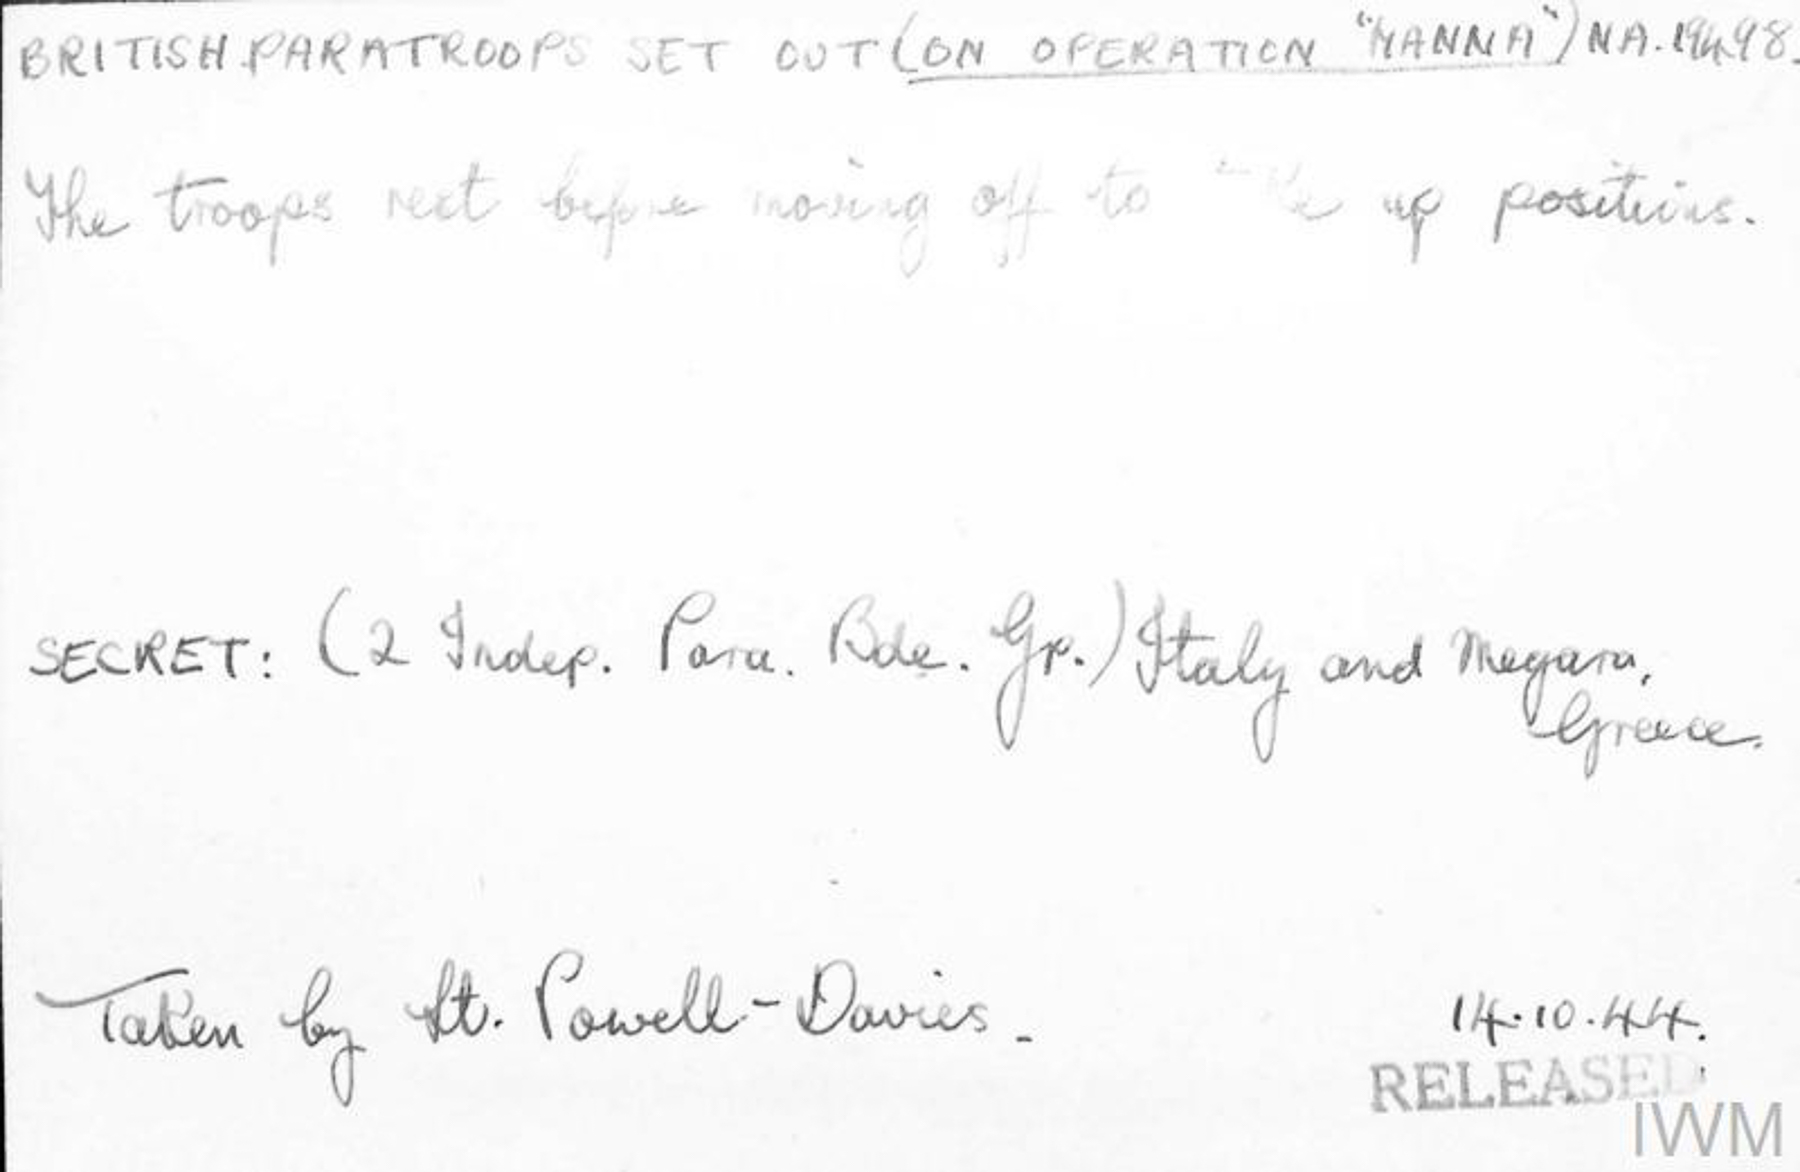 BRITISH PARATROOPS SET OUT (ON OPERATION "MANNA") NA.19498.
The troops rest before moving off to up positions.
SECRET: (2 Indep. Para. Bde. Gp.) Italy and Megara,
Greece.
Taken by Lt. Powell-Davies.
14.10.44.
RELEASED
IWM